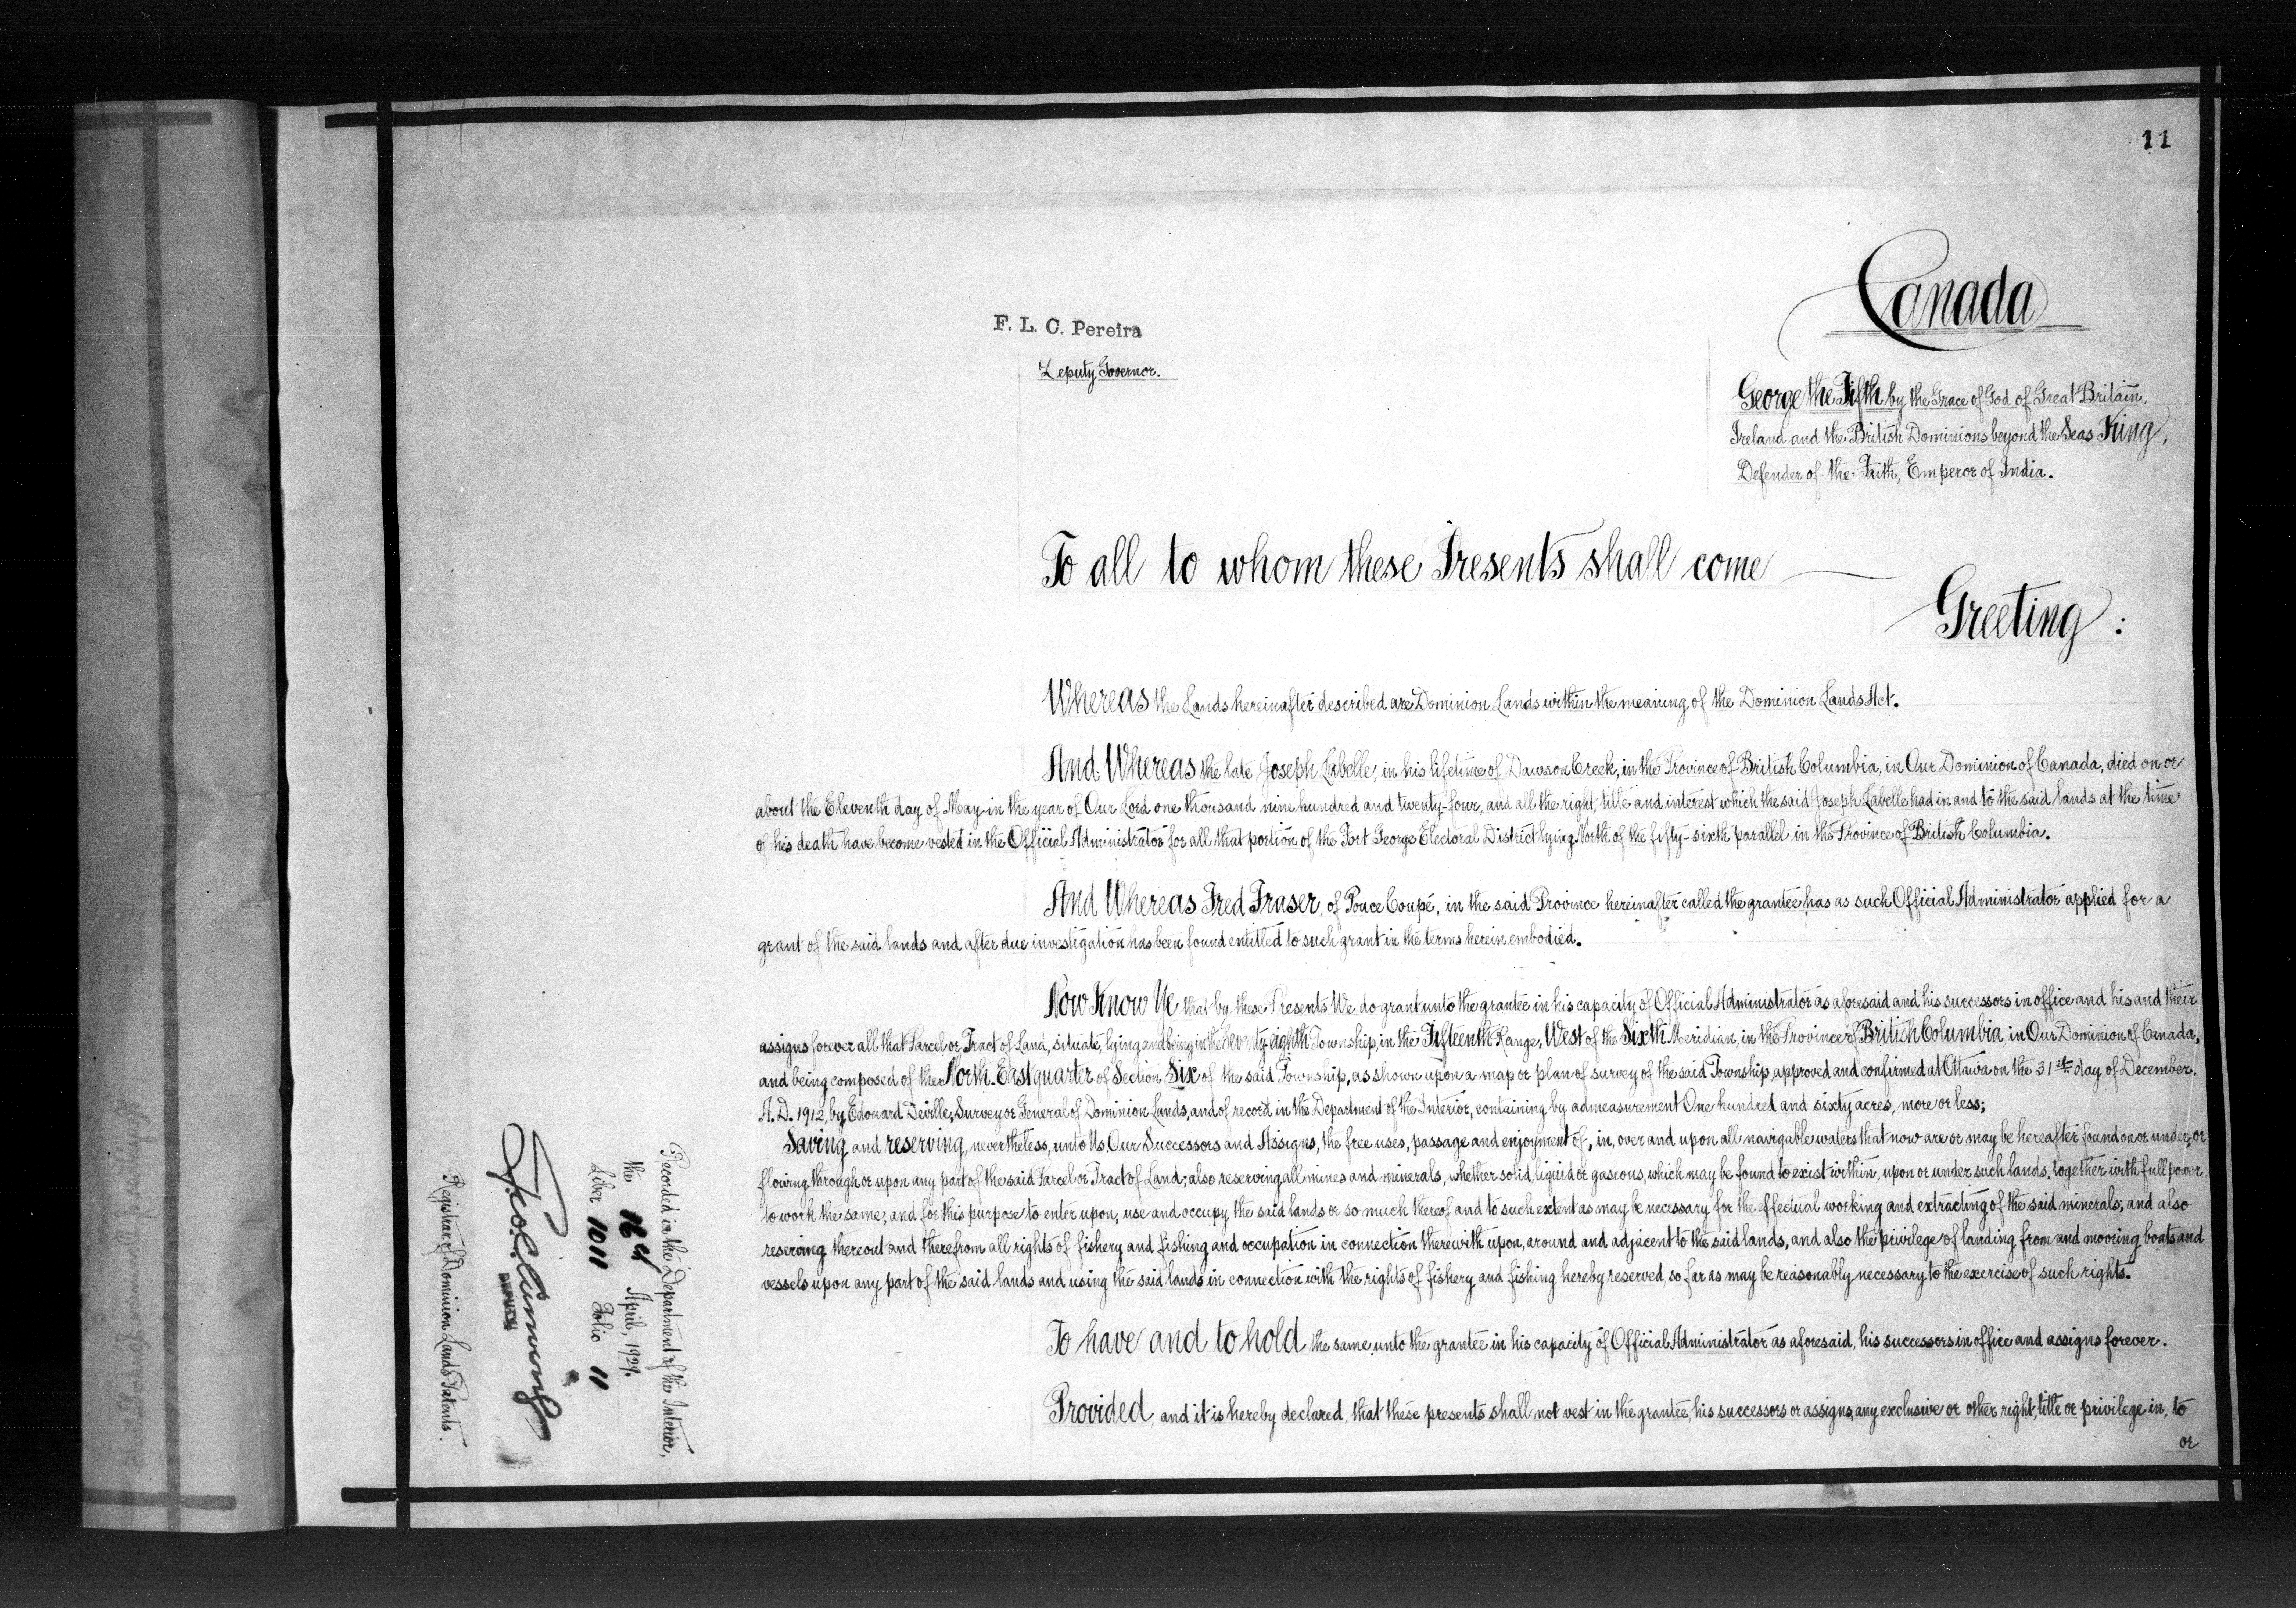 11
Canada
F. L. C. Pereira
Deputy Governor.
George the Fifth by the Grace of God of Great Britain,
Ireland and the British Dominions beyond the Seas King,
Defender of the Faith, Emperor of India.
To all to whom these Presents shall come
Greeting :
Whereas the Lands hereinafter described are Dominion Lands within the meaning of the Dominion Lands Act.
And Whereas the late Joseph Labelle, in his lifetime of Dawson Creek, in the Province of British Columbia, in Our Dominion of Canada, died on or
about the Eleventh day of May in the year of Our Lord one thousand nine hundred and twenty-four, and all the right, title and interest which the said Joseph Labelle had in and to the said lands at the time
of his death have become vested in the Official Administrator for all that portion of the Fort George Electoral District lying North of the fifty-sixth parallel in the Province of British Columbia.
And Whereas Fred Fraser, of Pouce Coupé, in the said Province hereinafter called the grantee, has as such Official Administrator applied for a
grant of the said lands and after due investigation has been found entitled to such grant in the terms herein embodied.
Now Know Ye that by these Presents We do grant unto the grantee in his capacity of Official Administrator as aforesaid and his successors in office and his and their
assigns forever all that Parcel or Tract of Land, situate, lying and being in the Seventy-eighth Township, in the Fifteenth Range, West of the Sixth Meridian, in the Province of British Columbia, in Our Dominion of Canada,
and being composed of the North-East quarter of Section Six of the said Township, as shown upon a map or plan of survey of the said Township approved and confirmed at Ottawa on the 31st day of December,
A. D. 1912, by Edouard Deville, Surveyor General of Dominion Lands, and of record in the Department of the Interior, containing by admeasurement One hundred and sixty acres, more or less;
Saving and reserving, nevertheless, unto Us Our Successors and Assigns, the free uses, passage and enjoyment of, in, over and upon all navigable waters that now are or may be hereafter found on or under, or
flowing through or upon any part of the said Parcel or Tract of Land; also reserving all mines and minerals, whether solid, liquid or gaseous, which may be found to exist within, upon or under such lands, together with full power
to work the same, and for this purpose to enter upon, use and occupy the said lands or so much thereof and to such extent as may be necessary for the effectual working and extracting of the said minerals; and also
reserving thereout and therefrom all rights of fishery and fishing and occupation in connection therewith upon, around and adjacent to the said lands, and also the privilege of landing from and mooring boats and
vessels upon any part of the said lands and using the said lands in connection with the rights of fishery and fishing hereby reserved, so far as may be reasonably necessary to the exercise of such rights.
To have and to hold the same unto the grantee in his capacity of Official Administrator as aforesaid, his successors in office and assigns forever.
Provided, and it is hereby declared, that these presents shall not vest in the grantee, his successors or assigns, any exclusive or other right, title or privilege in, to
or
Recorded in the Department of the Interior,
the 16th April, 1929.
Liber 1011 Folio 11
DEPUTY
Registrar of Dominion Lands Patents.